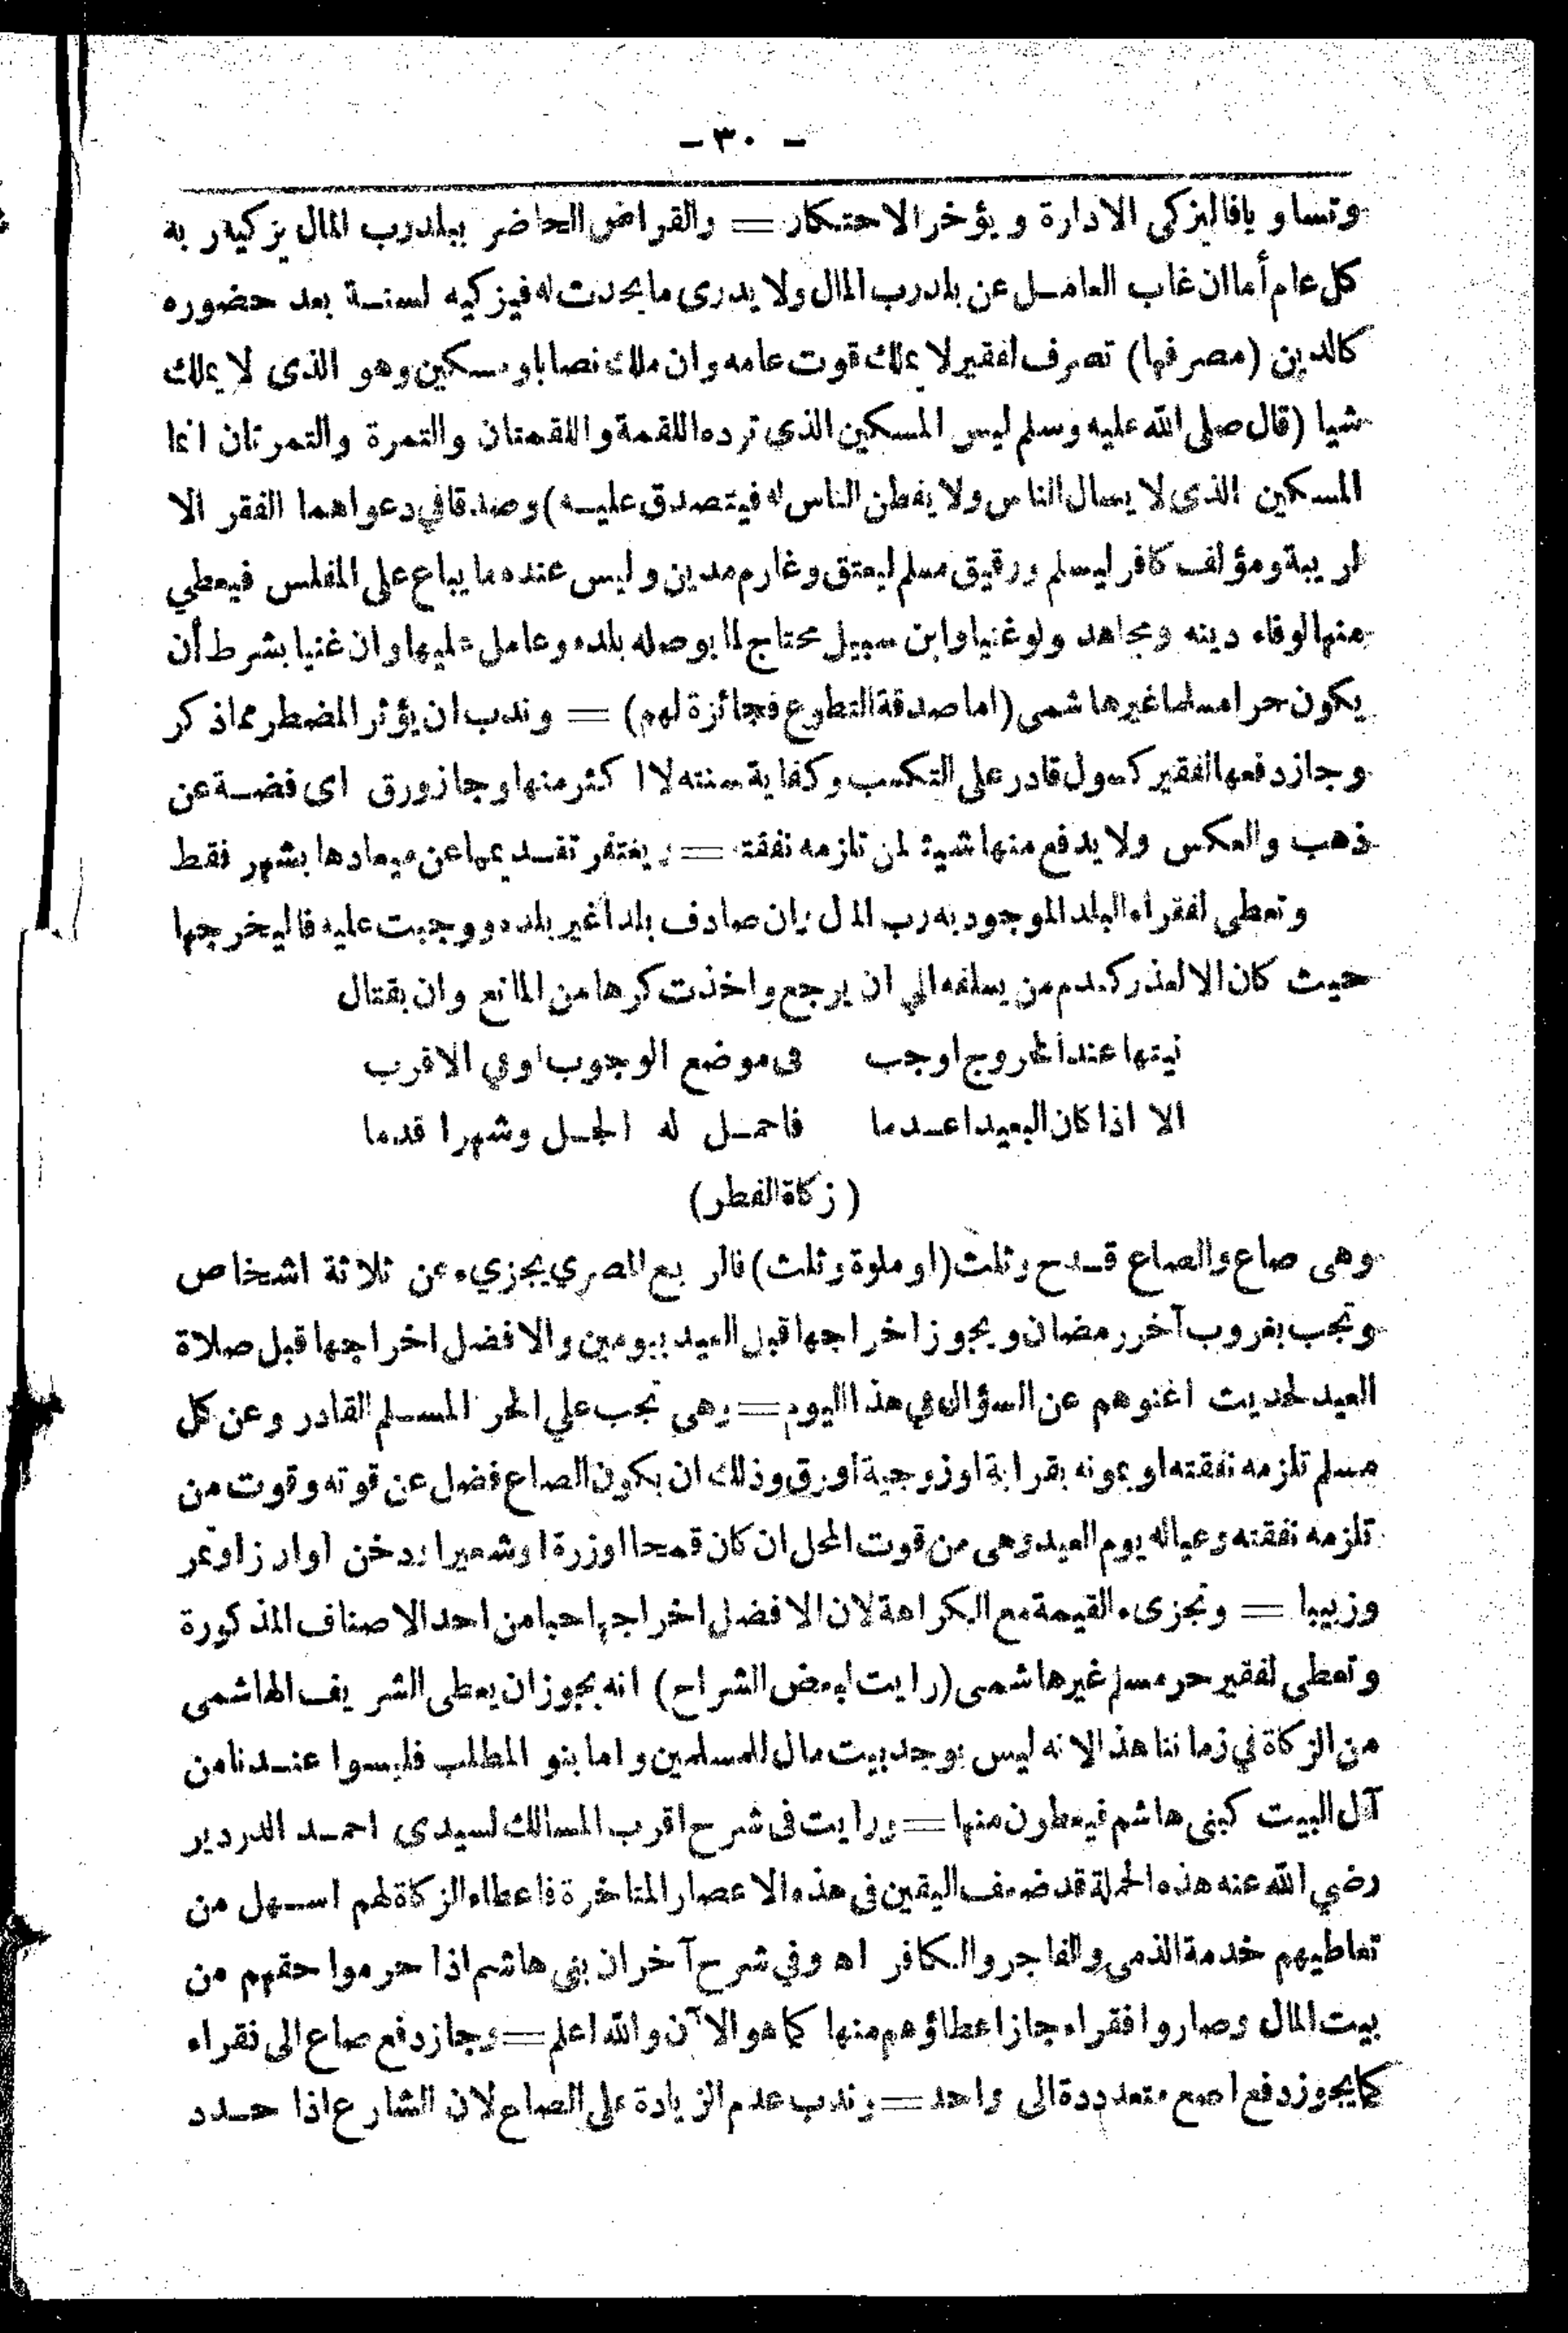 - ٣٠ -
وتساويا فاليزكى الادارة ويؤخر الاحتكار = والقراض الحاضر ببلد رب المال يزكيه ربه
كل عام أما ان غاب العامل عن بلد رب المال ولا يدرى ما يحدث له فيزكيه لسنة بعد حضوره
كالدين (مصرفها) تصرف لفقير لا يملك قوت عامه وان ملك نصابا ومسكين وهو الذى لا يملك
شيا (قال صلى الله عليه وسلم ليس المسكين الذي ترده اللقمة واللقمتان والتمرة والتمرتان انما
المسكين الذى لا يسال الناس ولا يفطن الناس له فيتصدق عليه) وصدقا في دعواهما الفقر الا
لريبة ومؤلف كافر ليسلم ورقيق مسلم ليعتق وغارم مدين وليس عنده ما يباع على المفلس فيعطي
منها لوفاء دينه ومجاهد ولو غنيا وابن سبيل محتاج لما يوصله بلده وعامل عليها وان غنيا بشرط أن
يكون حرا مسلما غير هاشمى (اما صدقة التطوع فجائزة لهم) = وندب ان يؤثر المضطر مما ذكر
وجاز دفعها لفقير كسول قادر على التكسب وكفاية سنته لا اكثر منها وجاز ورق اى فضة عن
ذهب والعكس ولا يدفع منها شيئ لمن تلزمه نفقته = ويغتفر تقديمها عن ميعادها بشهر فقط
وتعطى لفقراء البلد الموجود به رب المال وان صادف بلدا غير بلده ووجبت عليه فاليخرجها
حيث كان الا لعذر كعدم من يسلفه الي ان يرجع واخذت كرها من المانع وان بقتال
نيتها عند الخروج اوجب في موضع الوجوب اوفي الاقرب
الا اذا كان البعيد اعدما فاحمل له الجل وشهرا قدما
(زكاة الفطر)
وهى صاع والصاع قدح وثلث (او ملوة وثلث) فالربع المصري يجزيء عن ثلاثة اشخاص
وتجب بغروب آخر رمضان ويجوز اخراجها قبل العيد بيومين والافضل اخراجها قبل صلاة
العيد لحديث اغنوهم عن السؤال في هذا اليوم = وهى تجب علي الحر المسلم القادر وعن كل
مسلم تلزمه نفقته او يمونه بقرابة او زوجية اورق وذلك ان يكون الصاع فضل عن قوته وقوت من
تلزمه نفقته وعياله يوم العيد وهى من قوت المحل ان كان قمحا اوزرة اوشعيرا اودخن اوارزاوتمر
وزبيبا = وتجزىء القيمة مع الكراهة لان الافضل اخراجها حبا من احد الاصناف المذكورة
وتعطى لفقير حر مسلم غير هاشمى (رايت لبعض الشراح) انه يجوز ان يعطى الشريف الهاشمى
من الزكاة في زماننا هذا لانه ليس يوجد بيت مال للمسلمين واما بنو المطلب فليسوا عندنا من
آل البيت كبنى هاشم فيعطون منها = ورايت فى شرح اقرب المسالك لسيدى احمد الدردير
رضي الله عنه هذه الجملة قد ضعف اليقين فى هذه الاعصار المتاخرة فاعطاء الزكاة لهم اسهل من
تعاطيهم خدمة الذمى والفاجر والكافر اه وفي شرح آخر ان بنى هاشم اذا حرموا حقهم من
بيت المال وصاروا فقراء جاز اعطاؤهم منها كما هو الآن والله اعلم = وجاز دفع صاع الى فقراء
كما يجوز دفع اصع متعددة الى واحد = وندب عدم الزيادة على الصاع لان الشارع اذا حدد